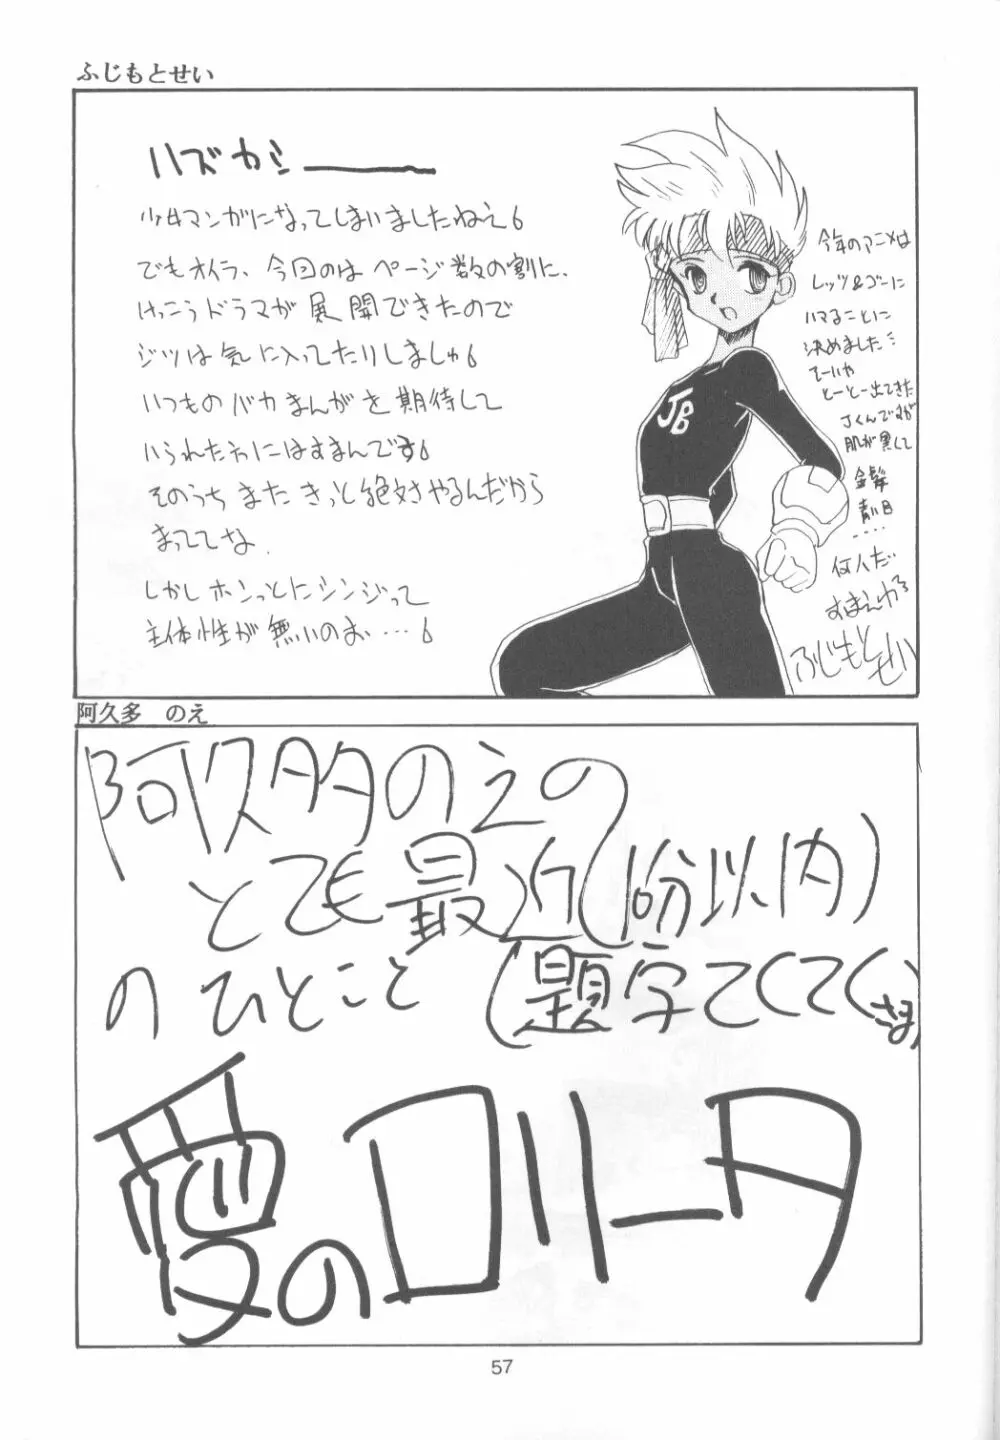 ふじもとせい
ハズカシ――
少女マンガになってしまいましたねえ。
でもオイラ、今回のは ページ数の割に、
けっこうドラマが 展開できたので
ジツは気に入ってたりしましゅ。
いつもの バカまんがを 期待して
いられた方にはすまんです。
そのうち また きっと絶対やるんだから
まっててな。
しかし ホンっとにシンジって
主体性が 無いのお…。
JB
今年のアニメは
レッツ&ゴーに
ハマることに
決めました…
そーいや
とーとー出てきた
Jくんですが
肌が黒くて
金髪
青い目
....
何人だ
すまえわろ
ふじもとせい
阿久多 のえ
阿久多のえの
とても最近(10分以内)
のひとこと (題字てくてくさま)
愛のロリータ
57